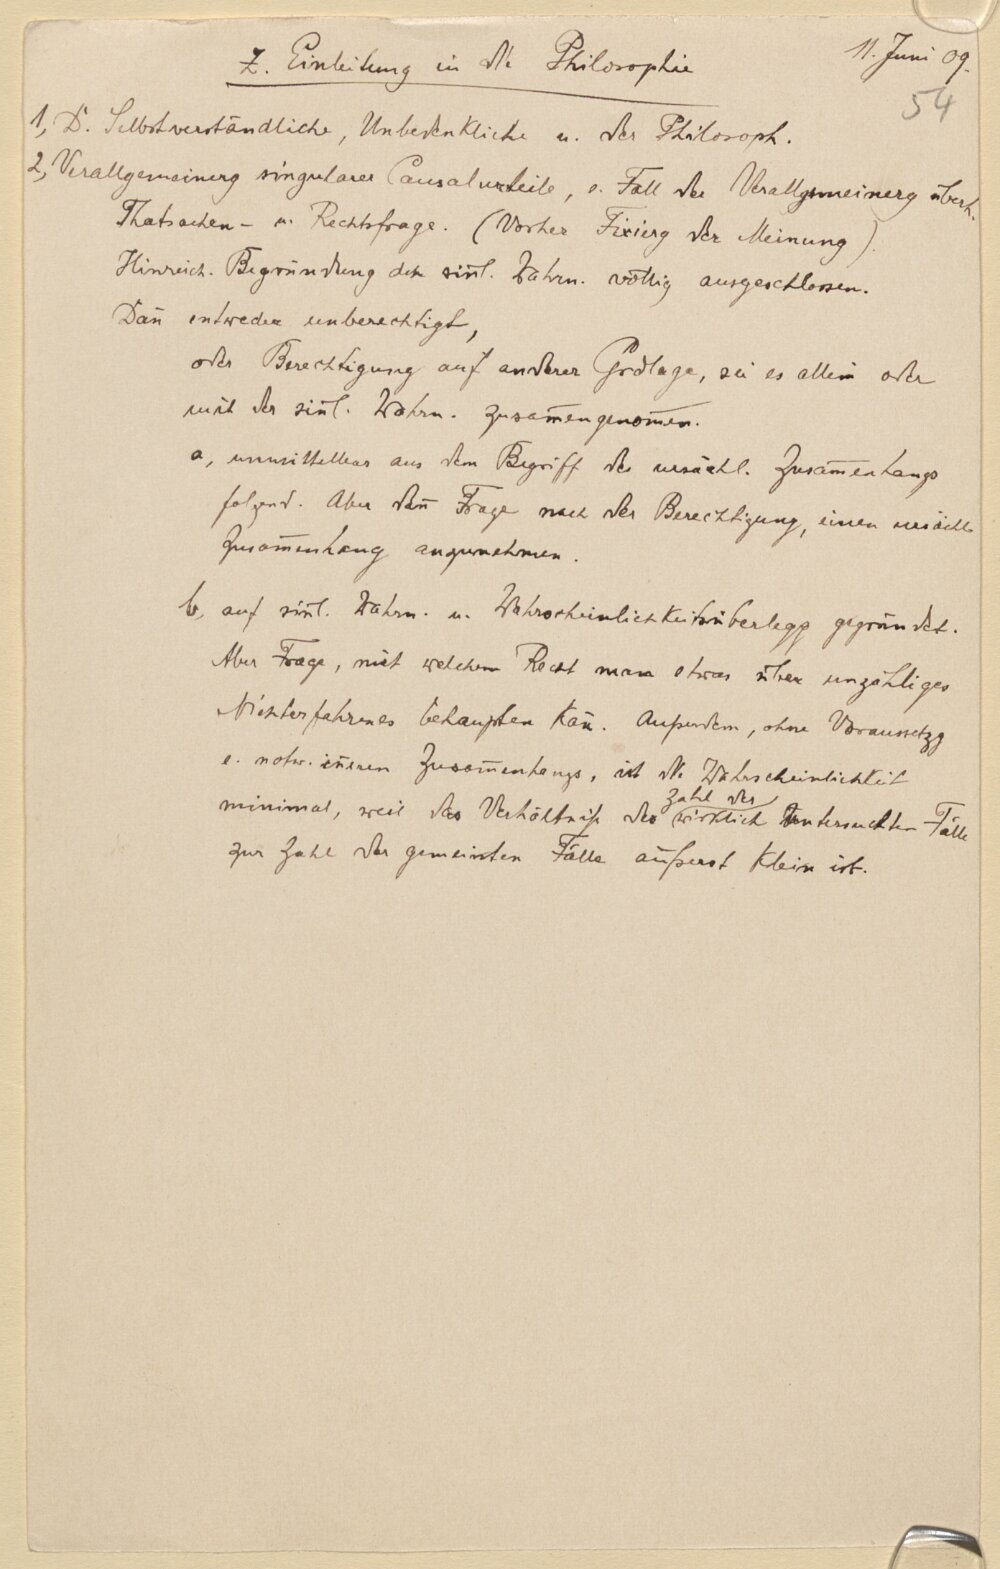 Z. Einleitung in die Philosophie
11. Juni 09.
54
1, D. Selbstverständliche, Unbedenkliche u. der Philosoph.
2, Verallgemeinerg singularer Causalurteile, e. Fall der Verallgemeinerg überh.
Thatsachen- u. Rechtsfrage. (Vorher Fixierg der Meinung).
Hinreich. Begründung dch siñl. Wahrn. völlig ausgeschlossen.
Dañ entweder unberechtigt,
oder Berechtigung auf anderer Grdlage, sei es allein oder
mit der siñl. Wahrn. zusam̅engenom̅en.
a, unmittelbar aus dem Begriff des ursächl. Zusam̅enhangs
folgend. Aber dañ Frage nach der Berechtigung, einen ursächl.
Zusam̅enhang anzunehmen.
b, auf siñl. Wahrn. u. Wahrscheinlichkeitsüberlegg gegründet.
Aber Frage, mit welchem Recht man etwas über unzähliges
Nichterfahrenes behaupten kañ. Außerdem, ohne Voraussetzg
e. notw. iñeren Zusam̅enhangs, ist die Wahrscheinlichkeit
minimal, weil das Verhältniß der Zahl der wirklich untersuchten Fälle
zur Zahl der gemeinten Fälle äußerst klein ist.